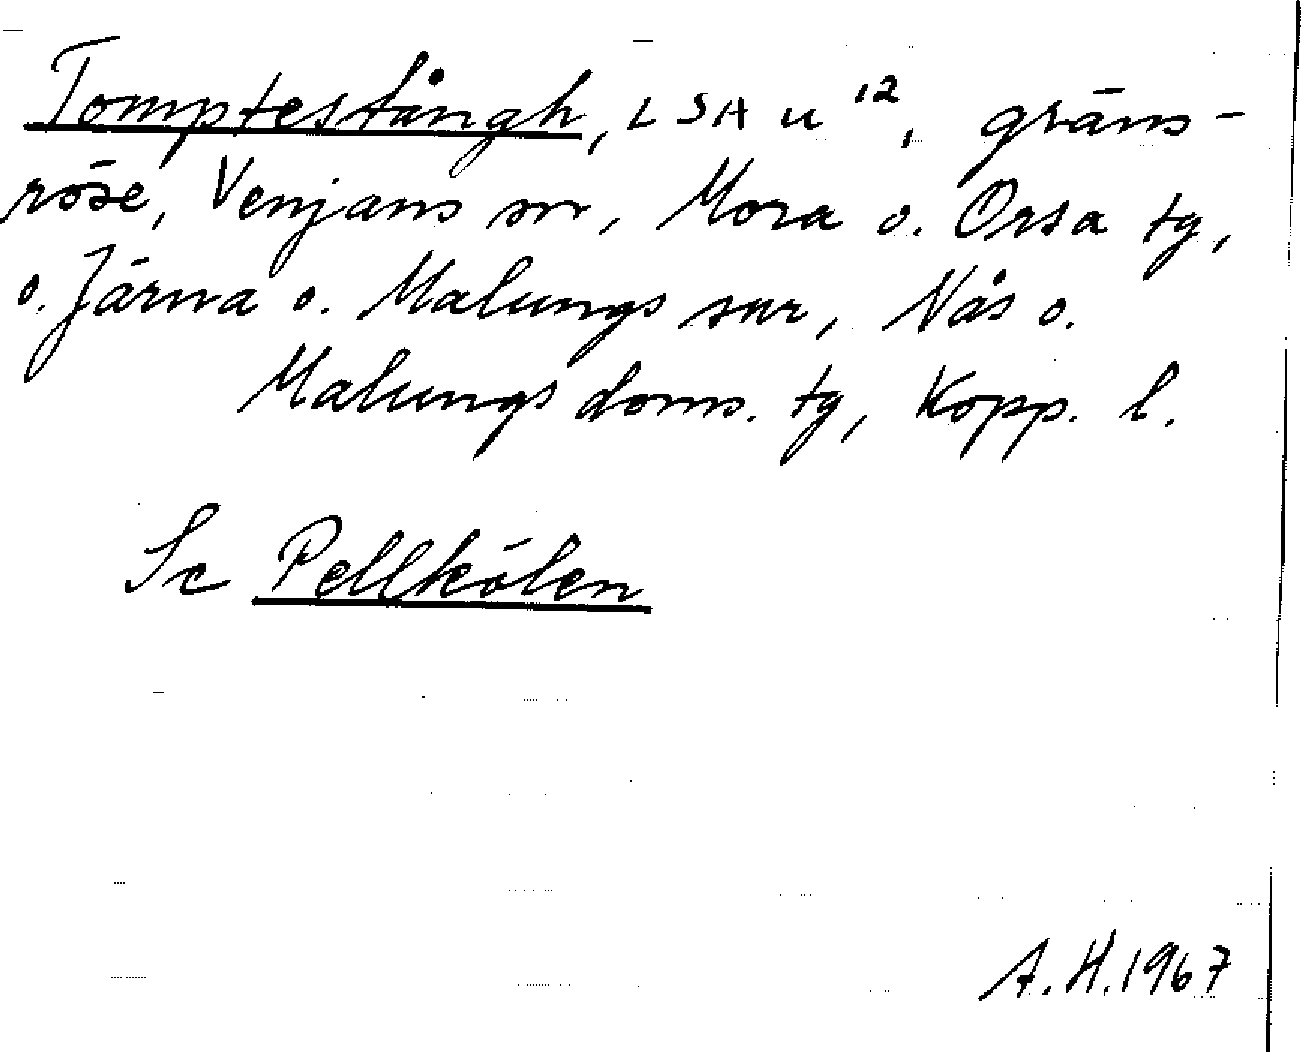 Tomptestångh, LSA u 12, gräns-
röse, Venjans sn, Mora o. Orsa tg,
o. Järna o. Malungs snr, Nås o.
Malungs doms. tg, Kopp. l.
Se Pellkölen
A.H. 1967